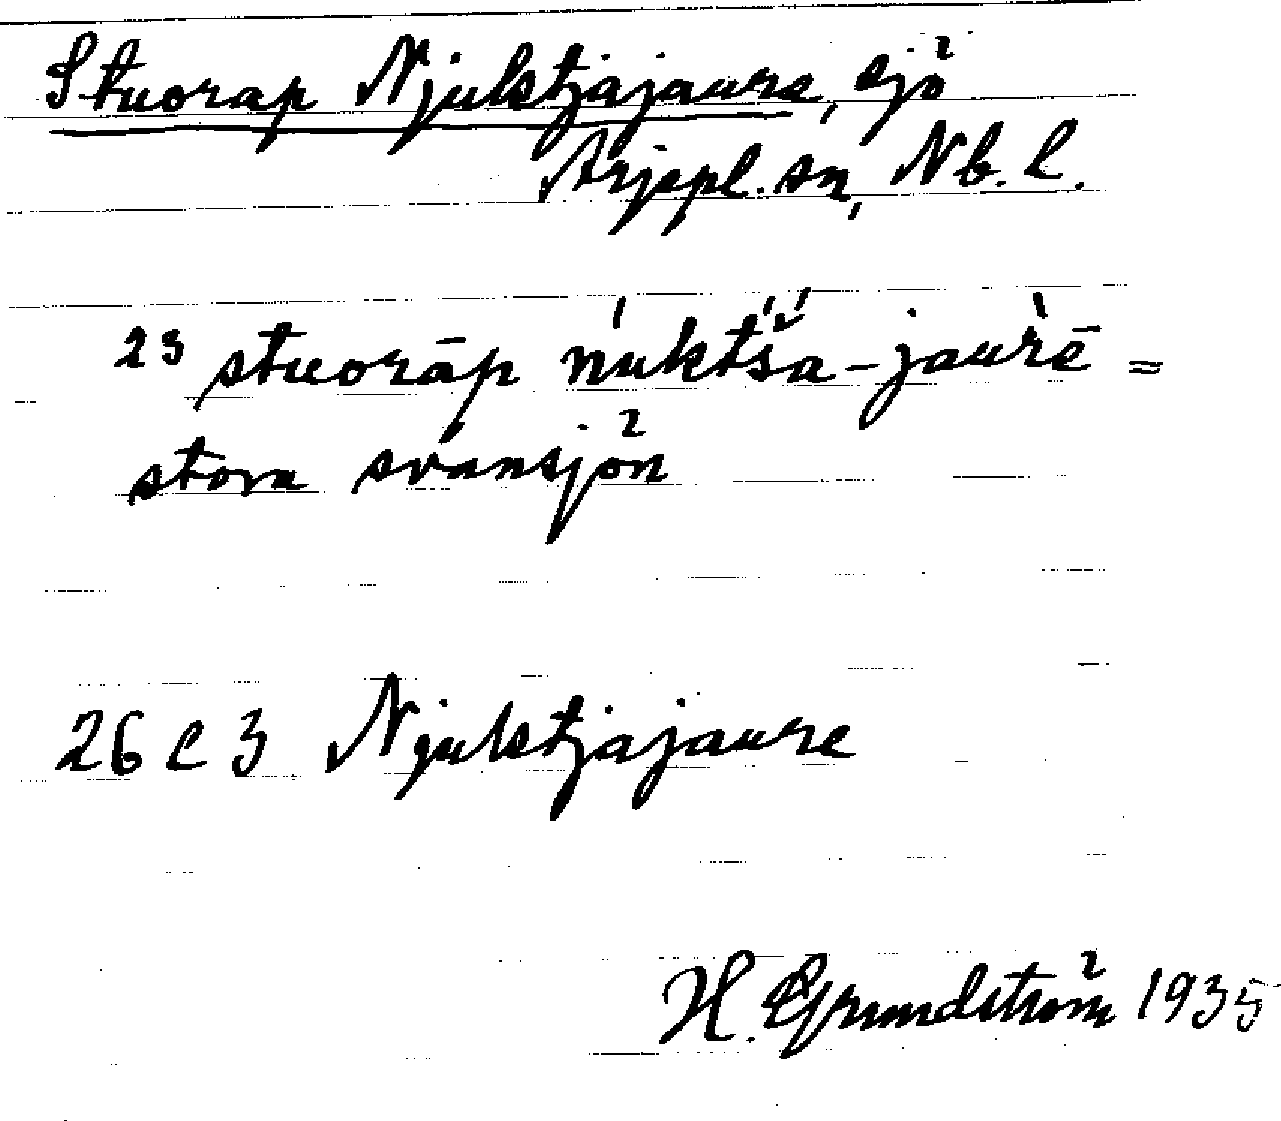 Stuorap Njuktjajaure, sjö
Arjepl. sn, Nb. l.
23 stuorāp ńukt́š́a-jaurē =
stora svansjön
26 e 3 Njuktjajaure
H. Grundström 1935